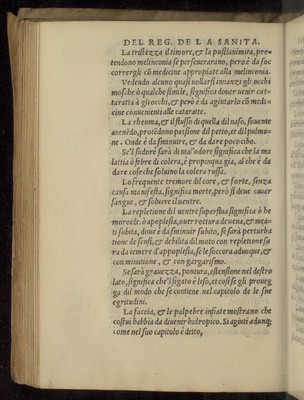 DEL REG. DE LA SANITA.
La tristezza il timore, & la pusillanimita, pre-
tendono melinconia se perseverarano, però è da soc
correrglli cō medicine appropiate alla melinconia.
Vedendo alcuno quasi vollarsi innanzi gli occhi
mosche ò qualche simile, significa dover venir cat-
taratta à gli occhi, & però è da agiutarlo cō medi-
cine convenienti alle cataratte.
La rheuma, & il flusso di quella dil naso, sovente
avenēdo, protēdono passione dil petto, et dil pulmo-
ne. Onde è da sminuire, & da dare poco cibo.
Se'l sudore sarà di mal'odore, significa che la ma
lattia ò febre di colera, è propinqua gia, al che è da
dare cose che soluino la colera rossa.
Lo frequente tremore dil core, & forte, senza
causa manifesta, significa morte, però si deve cavar
sangue, & solvere il ventre.
La repletione dil ventre superflua significa è he
morcode. ò apoplesia, over rottura de vena, & mor-
ti subita, dove è da sminuir subito, Se sarà perturba
tione de sensi, & debilita dil moto con repletione sa
ra da temere d'appoplesia, se le soccora adunque, &
con minutione, & con gargarismo.
Se sarà gravezza, pontura, estensione nel destro
lato, significa che'l figato è leso, et cosi se gli proveg
ga dil modo che se contiene nel capitolo de le sue
egritudini.
La faccia, & le palpebre infiate mostrano che
costui habbia da divenir hidropico. Si agiuti adunq;
come nel suo capitolo è detto,